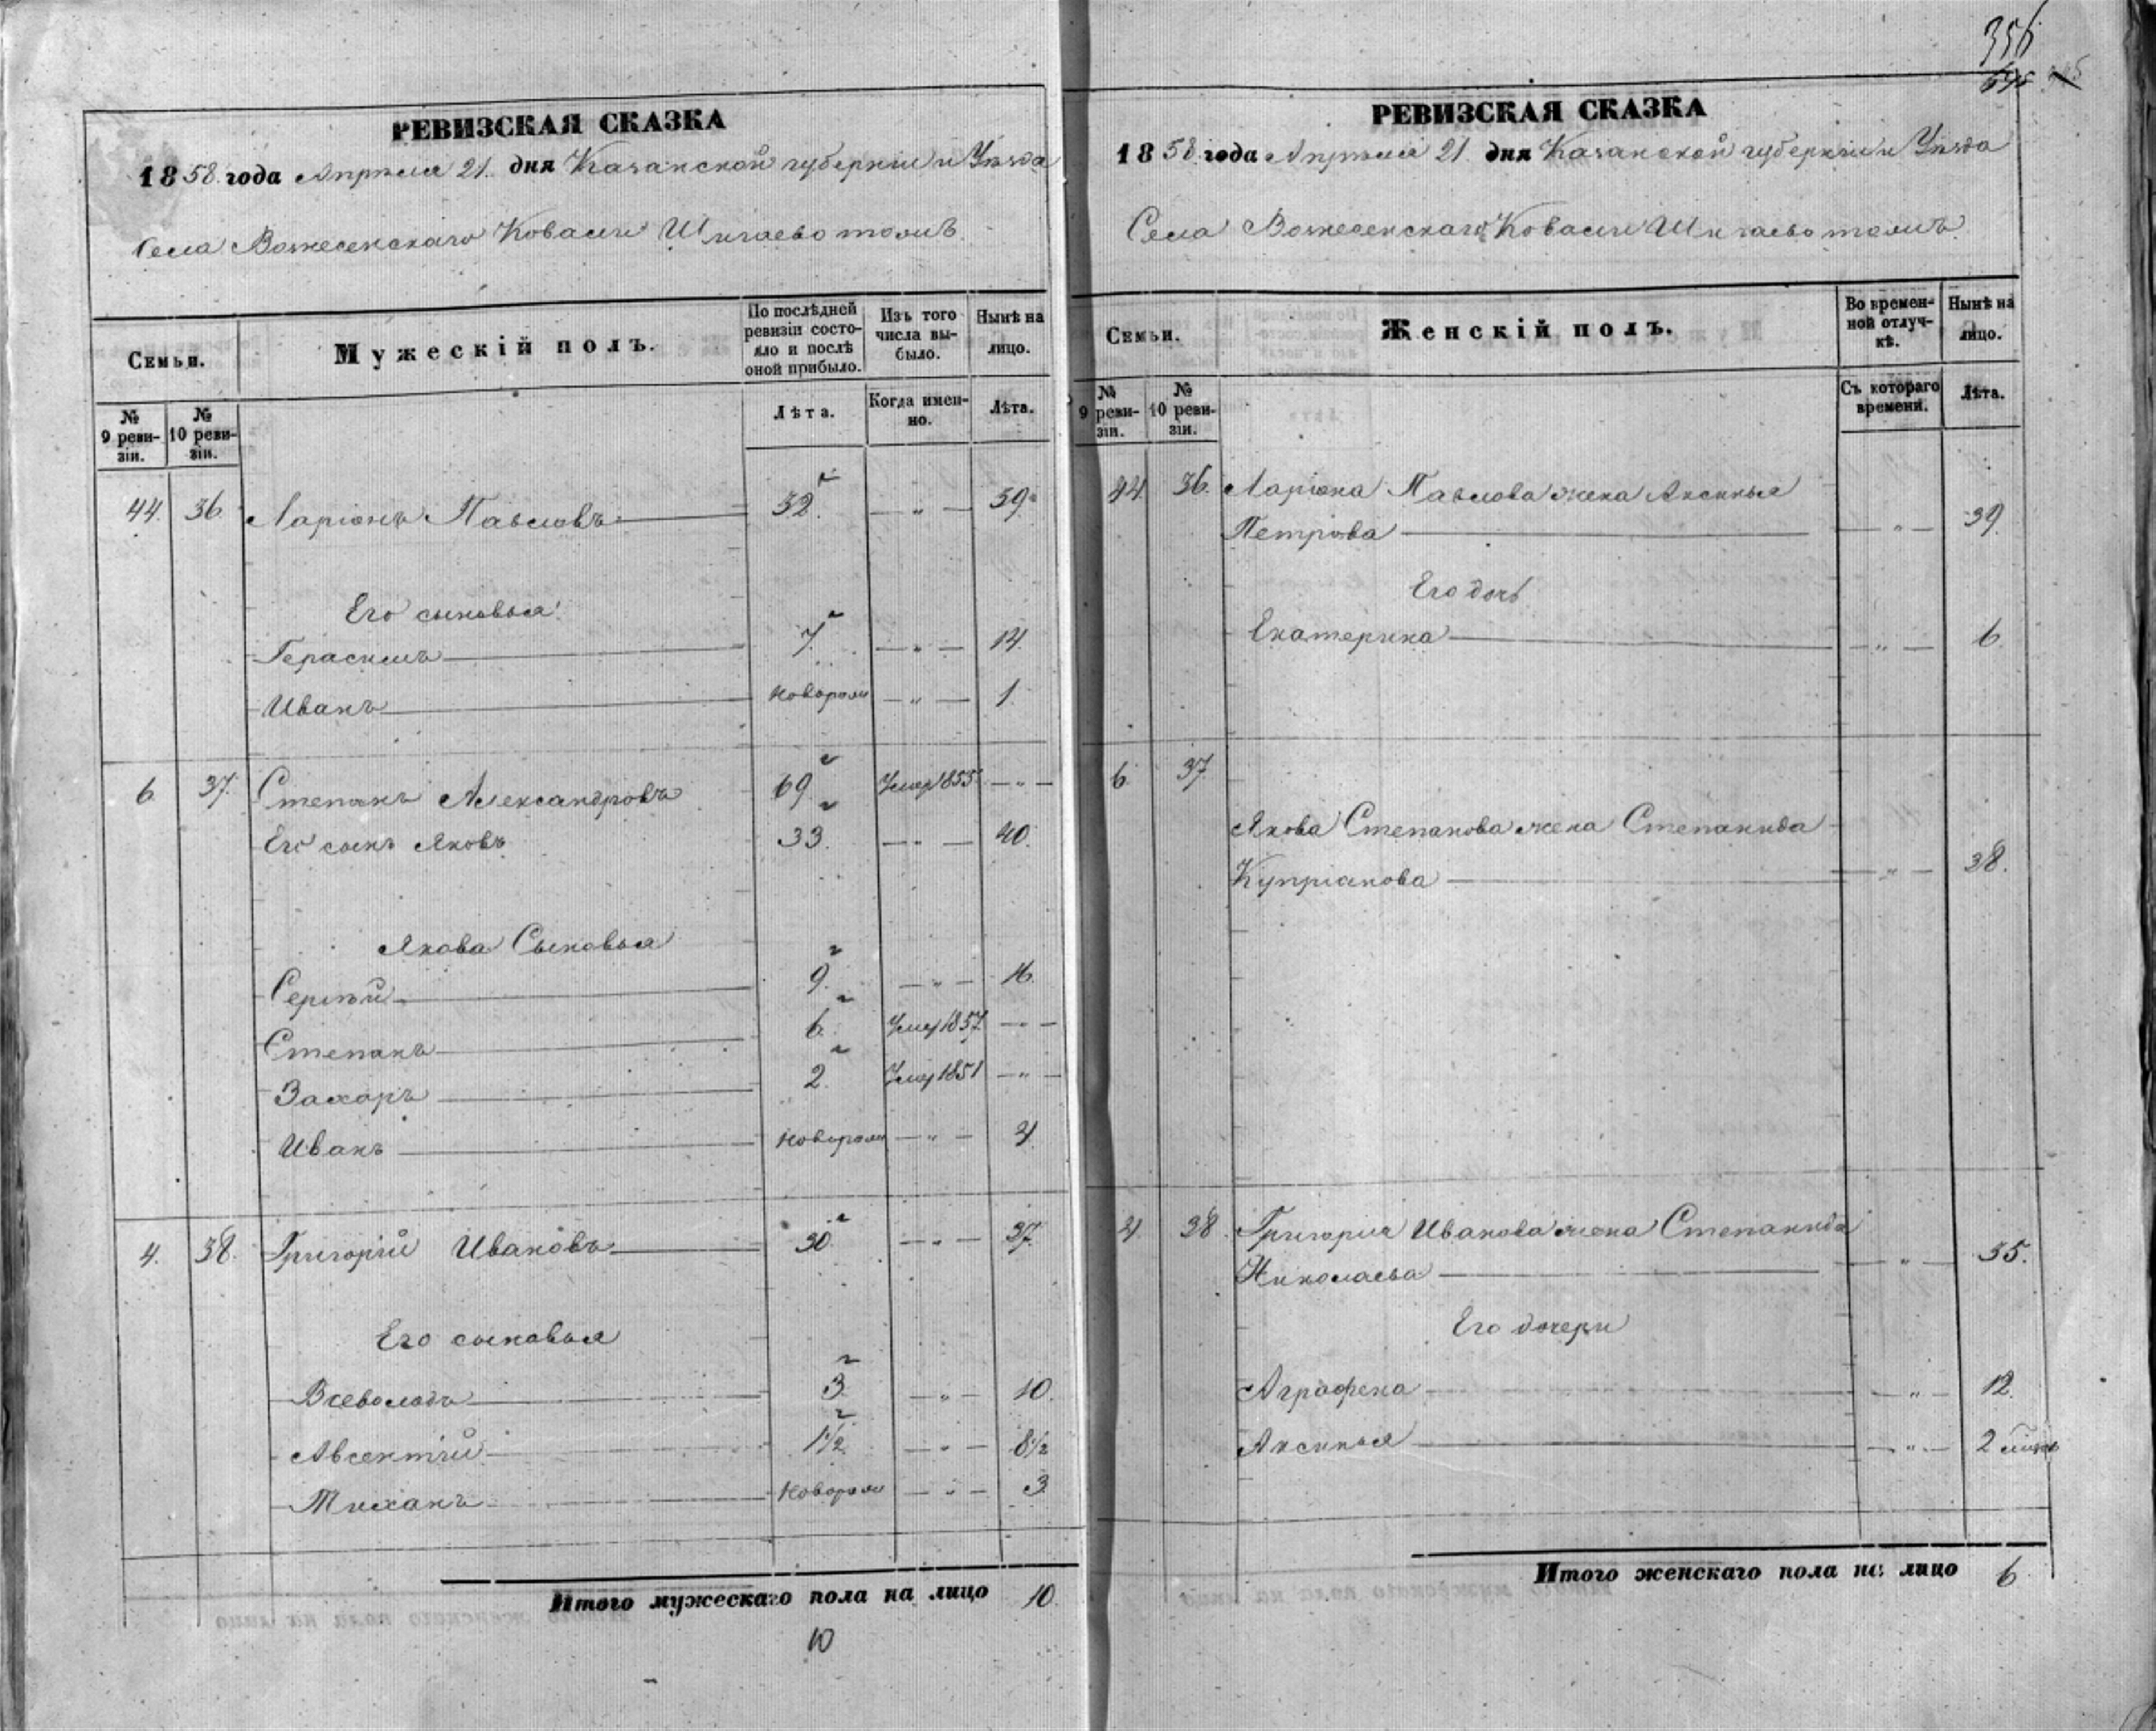 356
РЕВИЗСКАЯ СКАЗКА
1858. года Апрѣля 21. дня Казанской губерніи и Уѣзда
Села Вознесенскаго Ковали Шигаево тожъ.
Семьи.
Мужескій полъ.
По послѣдней ревизіи состояло и послѣ оной прибыло.
Изъ того числа выбыло.
Нынѣ на лицо.
№ 9 ревизіи.
№ 10 ревизіи.
Лѣта.
Когда именно.
Лѣта.
44. 36. Ларіонъ Павловъ 32. — „ — 39.
Его сыновья:
Герасимъ 7. — „ — 14.
Иванъ новорож — „ — 1.
6. 37. Степанъ Александровъ 69. Умер 1855. — „ —
Его сынъ Яковъ 33. — „ — 40.
Якова Сыновья
Сергѣй 9. — „ — 16.
Степанъ 6. Умер 1857. — „ —
Захаръ 2. Умер 1851 — „ —
Иванъ новорож — „ — 4.
4. 38. Григорій Ивановъ 30. — „ — 37.
Его сыновья
Всеволодъ 3. — „ — 10.
Авсентій 1½. — „ — 8½
Тиханъ новорож — „ — 3.
Итого мужескаго пола на лицо 10.
10
РЕВИЗСКАЯ СКАЗКА
1858. года Апрѣля 21. дня Казанской губерніи и Уѣзда
Села Вознесенскаго Ковали Шигаево тожъ.
Семьи.
Женскій полъ.
Во временной отлучкѣ.
Нынѣ на лицо.
№ 9 ревизіи.
№ 10 ревизіи.
Съ котораго времени.
Лѣта.
44. 36. Ларіона Павлова жена Аксинья
Петрова — „ — 39.
Его дочь
Екатерина — „ — 6.
6. 37.
Якова Степанова жена Степанида
Купріанова — „ — 38.
4. 38. Григорія Иванова жена Степанида
Николаева — „ — 35.
Его дочери
Аграфена — „ — 12.
Аксинья — „ — 2
Итого женскаго пола на лицо 6.